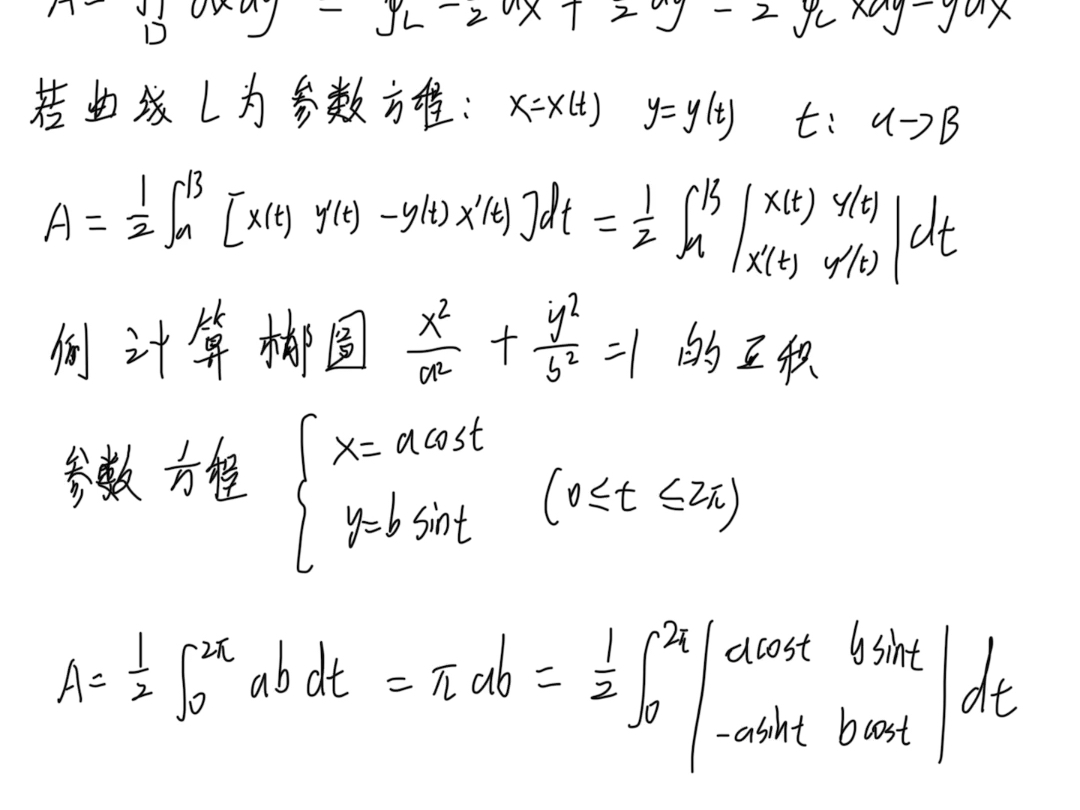 A = ∬_D dxdy = ∮_L -y/2 dx + x/2 dy = 1/2 ∮_L xdy - ydx
若曲线 L 为参数方程: x=x(t) y=y(t) t: α→β
A = 1/2 ∫_α^β [x(t) y'(t) - y(t) x'(t)]dt = 1/2 ∫_α^β |x(t) y(t); x'(t) y'(t)| dt
例 计算椭圆 x²/a² + y²/b² =1 的面积
参数方程 { x= a cost
y=b sint (0≤t ≤2π)
A= 1/2 ∫_0^{2π} ab dt = π ab = 1/2 ∫_0^{2π} |a cost b sint; -a sint b cost| dt